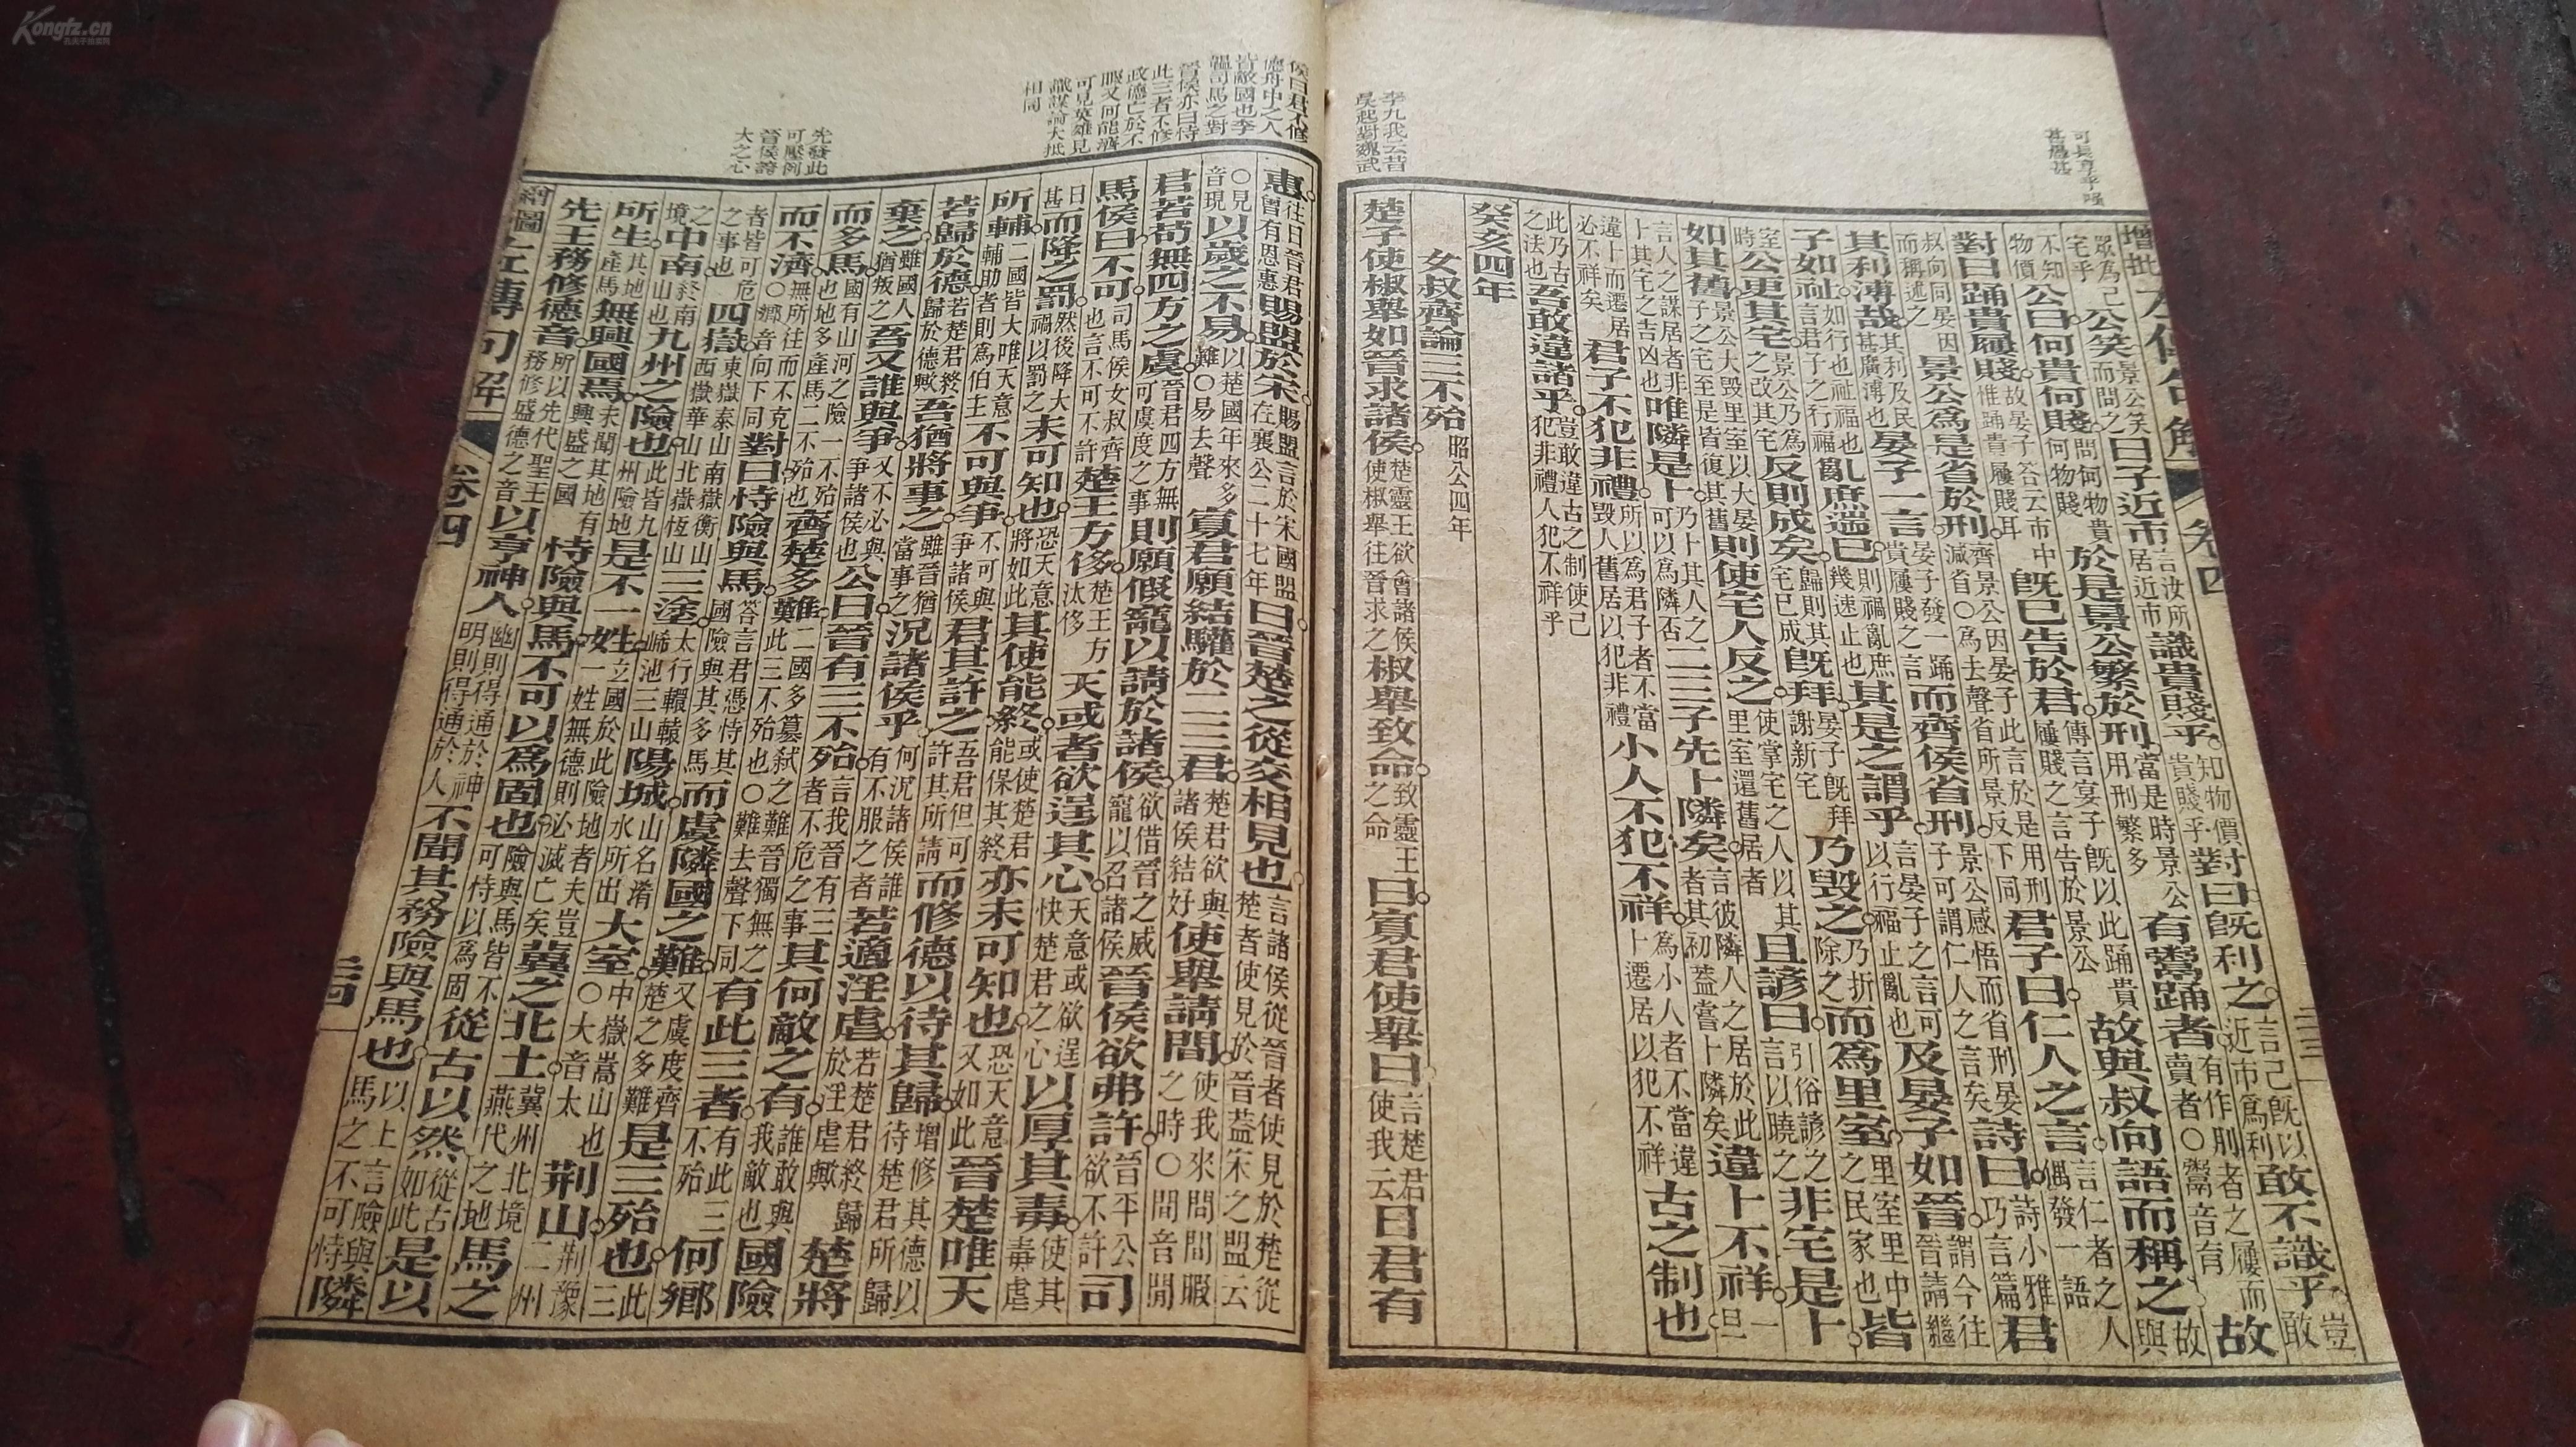 可長亨乎強
甚愚甚
李九我云昔
吳起對魏武
增批左傳句解 卷四 三三
眾為己宅乎公笑景公笑而問之曰子近市言汝所居近市識貴賤乎知物價貴賤乎對曰旣利之言己旣以近市為利敢不識乎豈敢
不知物價公曰何貴何賤問何物貴何物賤於是景公繁於刑當是時景公用刑繁多有鬻踊者有作刖者之屨而賣者○鬻音育故
對曰踊貴屨賤故晏子荅云市中惟踊貴屨賤耳旣已告於君傳言宴子旣以此踊貴屨賤之言告於景公故與叔向語而稱之故與
叔向同晏因而稱述之景公為是省於刑齊景公因晏子此言於是用刑減省○為去聲省所景反下同君子曰仁人之言言仁者之人偶發一語
其利溥哉其利及民甚廣溥也晏子一言晏子發一踊貴屨賤之言而齊侯省刑景公感悟而省刑晏子可謂仁人之言矣詩曰詩小雅巧言篇君
子如祉言君子之行福如行也祉福也亂庶遄已則禍亂庶幾速止也其是之謂乎言晏子之言可以行福止亂也及晏子如晉謂今往晉請繼
室公更其宅景公乃為之改其宅反則成矣歸則其宅已成旣拜晏子旣拜謝新宅乃毀之乃折除之而為里室里室里中之民家也皆
如其舊景公大毀里室以大晏子之宅至是皆復其舊則使宅人反之使掌宅之人以其里室還舊居者且諺曰引俗諺之言以曉之非宅是卜
言人之謀居者非卜其宅之吉凶也唯隣是卜乃卜其人之可以為隣否二三子先卜隣矣言彼隣人之居於此者其初葢嘗卜隣矣違卜不祥旦一
違卜而遷居必不祥矣君子不犯非禮所以為君子者不當毀人舊居以犯非禮小人不犯不祥為小人者不當違卜遷居以犯不祥古之制也
此乃古之法也吾敢違諸乎豈敢違古之制使己犯非禮人犯不祥乎
癸亥四年
女叔齊論三不殆 昭公四年
楚子使椒舉如晉求諸侯楚靈王欲會諸侯使椒舉往晉求之椒舉致命致靈王之命曰寡君使舉曰言楚君使我云日君有
侯曰君不修
德舟中之人
皆敵國也李
龝司馬之對
晉侯亦曰恃
此三者不修
政德亡於不
暇又何能濟
可見英雄見
識謀論大抵
相同
先發此
可壓倒
晉侯誇
大之心
惠往日晉君曾有恩惠賜盟於宋賜盟言於宋國盟在襄公二十七年曰晉楚之從交相見也言諸侯從晉者使見於楚從楚者使見於晉葢宋之盟云
○見音現以歲之不易以楚國年來多難○易去聲寡君願結驩於二三君楚君欲與諸侯結好使舉請間使我來問間暇之時○間音閒
君若苟無四方之虞晉君四方無可虞度之事則願假寵以請於諸侯欲借晉之威寵以召諸侯晉侯欲弗許晉平公欲不許司
馬侯曰不可司馬侯女叔齊也言不可不許楚王方侈楚王方汰侈天或者欲逞其心天意或欲逞快楚君之心以厚其毒使其毒虐
日甚而降之罰然後降大禍以罰之未可知也恐天意將如此其使能終或使楚君能保其終亦未可知也恐天意又如此晉楚唯天
所輔二國皆大唯天意輔助者則為伯主不可與爭不可與爭諸侯君其許之吾君但可許其所請而修德以待其歸增修其德以待楚君所歸
若歸於德若楚君終歸於德歟吾猶將事之雖晉猶當事之況諸侯乎何況諸侯誰有不服之者若適淫虐若楚君終歸於淫虐歟楚將
棄之雖國人猶叛之吾又誰與爭又不必與爭諸侯也公曰晉有三不殆言我晉有三者不危之事其何敵之有誰敢與我敵也國險
而多馬國有山河之險一不殆也地多產馬二不殆也齊楚多難二國多篡弒之難晉獨無之此三不殆也○難去聲下同有此三者有此三不殆何鄉
而不濟無所往而不克○鄉音向下同對曰恃險與馬荅言君憑恃其國險與其多馬而虞隣國之難又虞度齊楚之多難是三殆也此三
者皆可危之事也四嶽東嶽泰山南嶽衡山西嶽華山北嶽恆山三塗太行轘轅崤池三山陽城山名淆水所出大室中嶽嵩山也○大音太荊山荊豫二州
之境中南終南山也九州之險也此皆九州險地是不一姓立國於此險地者夫豈一姓無德則必滅亡矣冀之北土冀州北境燕代之地馬之
所生其地產馬無興國焉未聞其地有興盛之國恃險與馬不可以為固也險與馬皆不可恃以為固從古以然從古如此是以
先王務修德音所以先代聖王務修盛德之音以亨神人幽則得通於神明則得通於人不聞其務險與馬也以上言險與馬之不可恃隣
繪圖左傳句解 卷四 三四